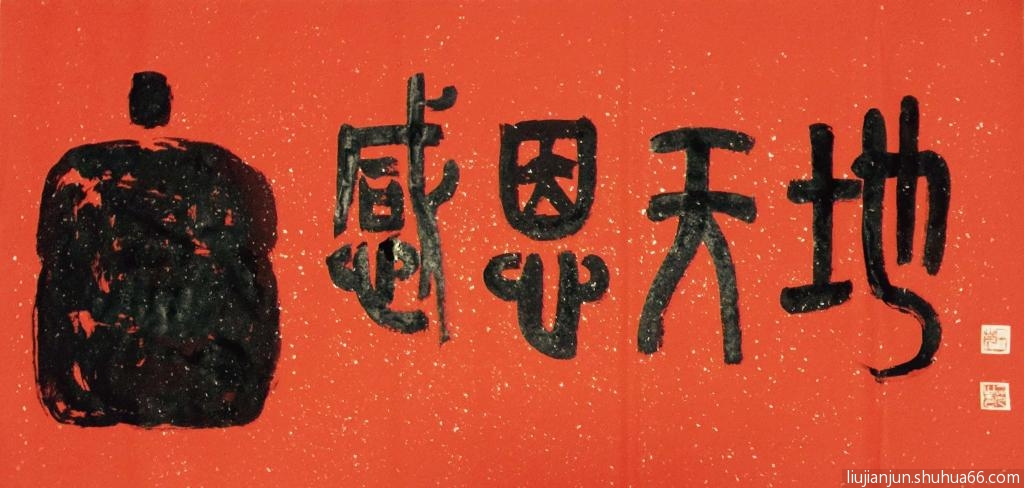 感恩天地
liujianjun.shuhua66.com